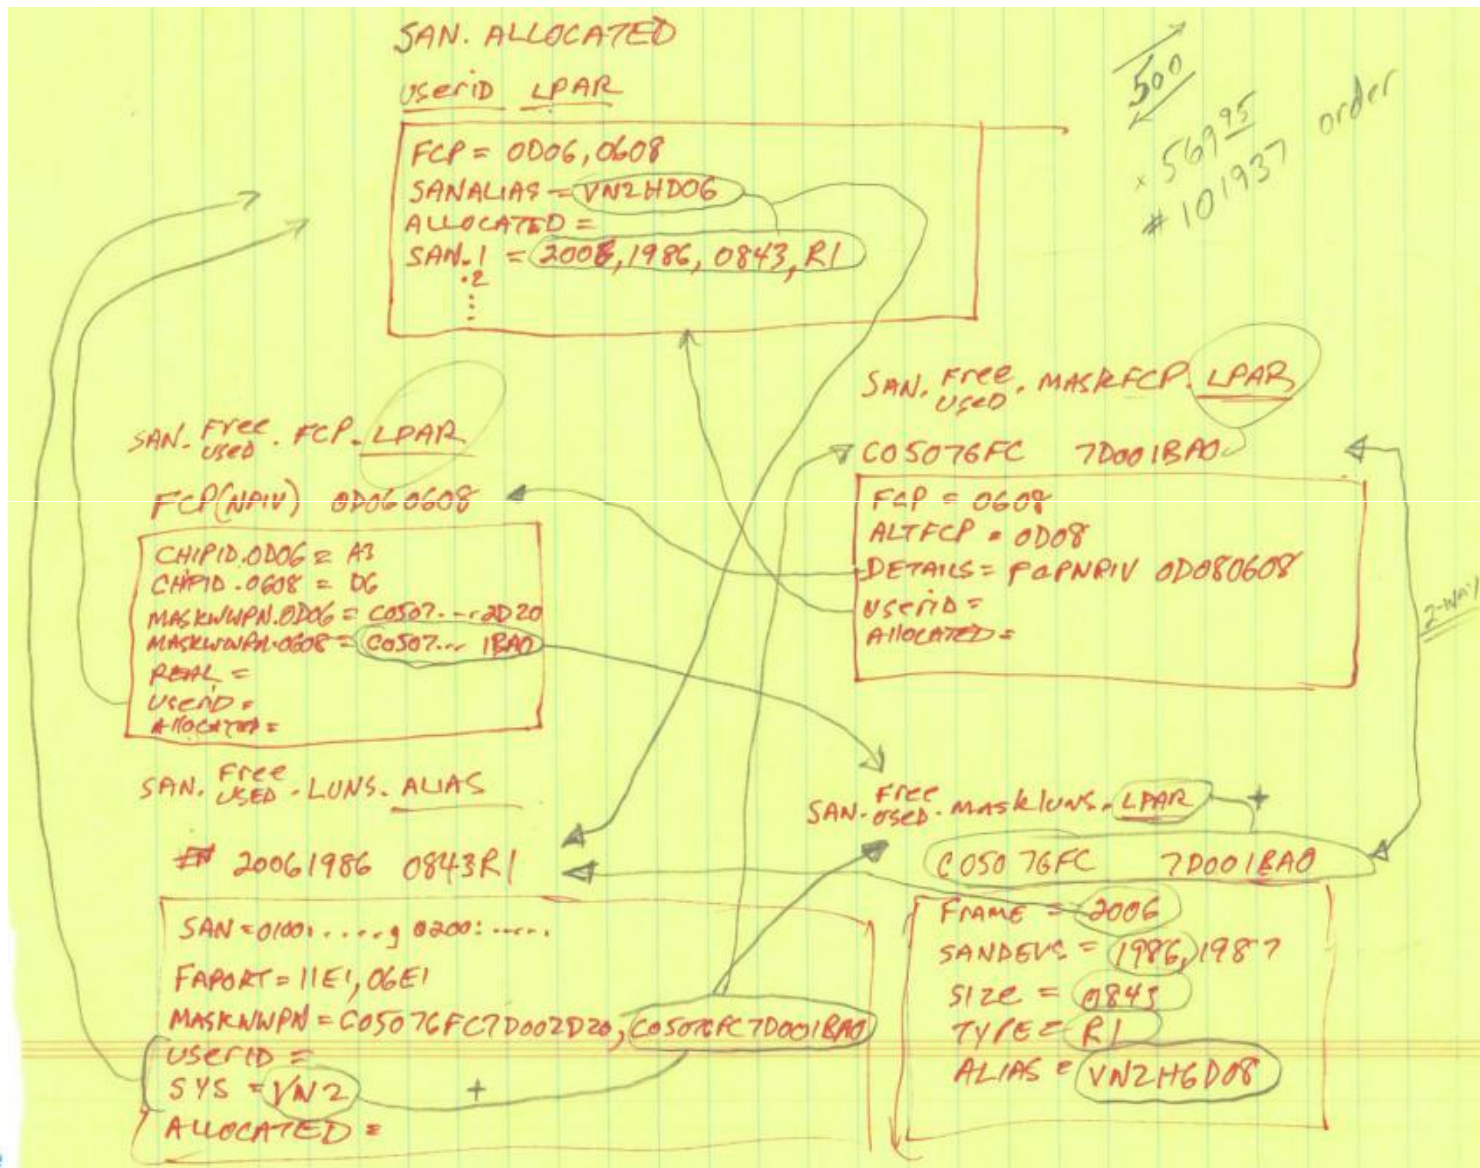 SAN. ALLOCATED
userid LPAR
FCP = 0D06, 0608
SANALIAS = VN2HD06
ALLOCATED =
SAN.1 = 2006, 1986, 0843, R1
.2
⋮
500
x 569 95
# 101937 order
SAN. Free USED . FCP. LPAR
FCP(NPIV) 0D060608
CHIPID.0D06 = A3
CHPID.0608 = D6
MASKWWPN.0D06 = C0507...2D20
MASKWWPN.0608 = C0507... 1BA0
REAL =
USERID =
AllOCATED =
SAN. Free USED . MASKFCP. LPAR
C05076FC 7D001BA0
FCP = 0608
ALTFCP = 0D08
DETAILS = FCPNPIV 0D080608
userID =
AllOCATED =
2-WAY
SAN. Free USED . LUNS. ALIAS
# 20061986 0843R1
SAN = 0100: ...., 0200: .....
FAPORT = 11E1, 06E1
MASKWWPN = C05076FC7D002D20, C05076FC7D001BA0
userID =
SYS = VN2
+
ALLOCATED =
SAN. Free USED . maskluns. LPAR +
C05076FC 7D001BA0
FRAME = 2006
SANDEVS = 1986, 1987
SIZE = 0843
TYPE = R1
ALIAS = VN2H6D08